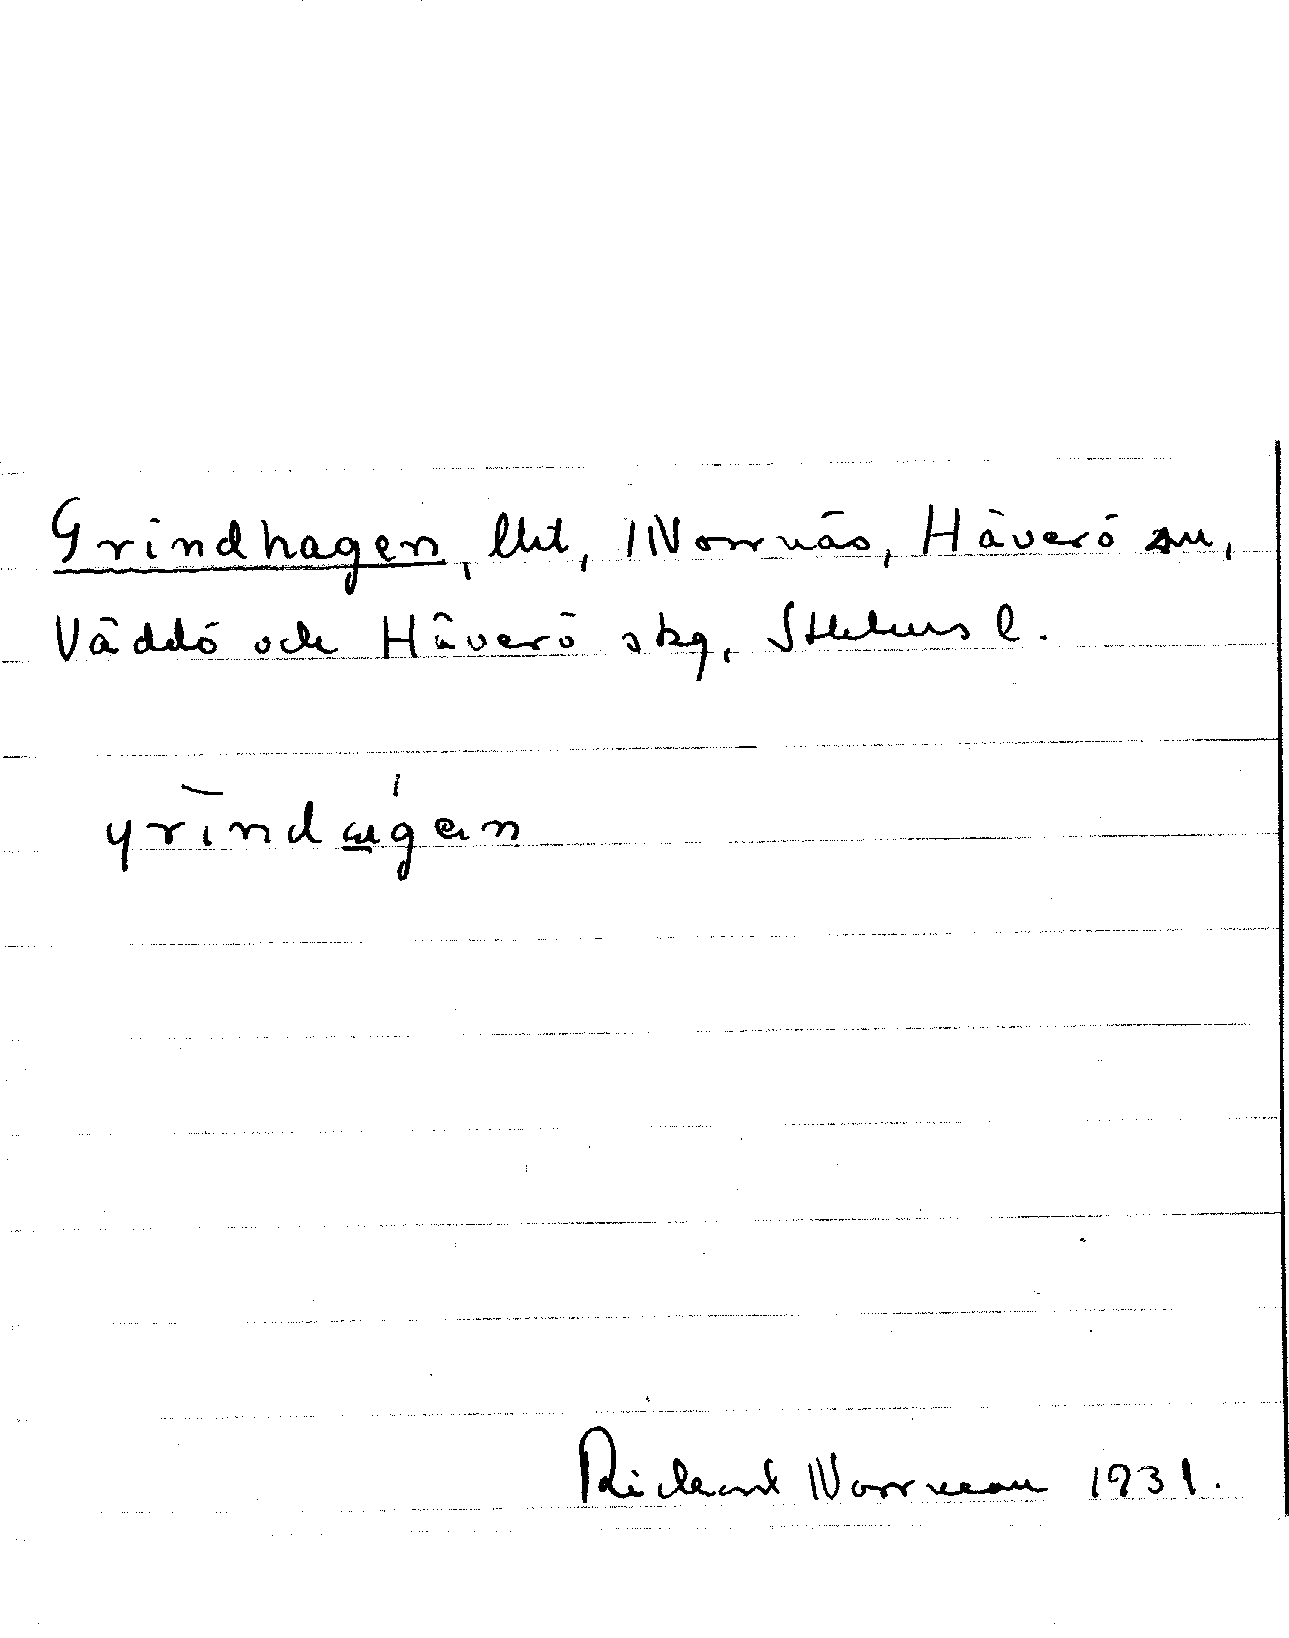 Grindhagen, lht, Norrnäs, Häverö sn,
Väddö och Häverö skg, Sthlms l.
grindagen
Rickard Norrman 1931.